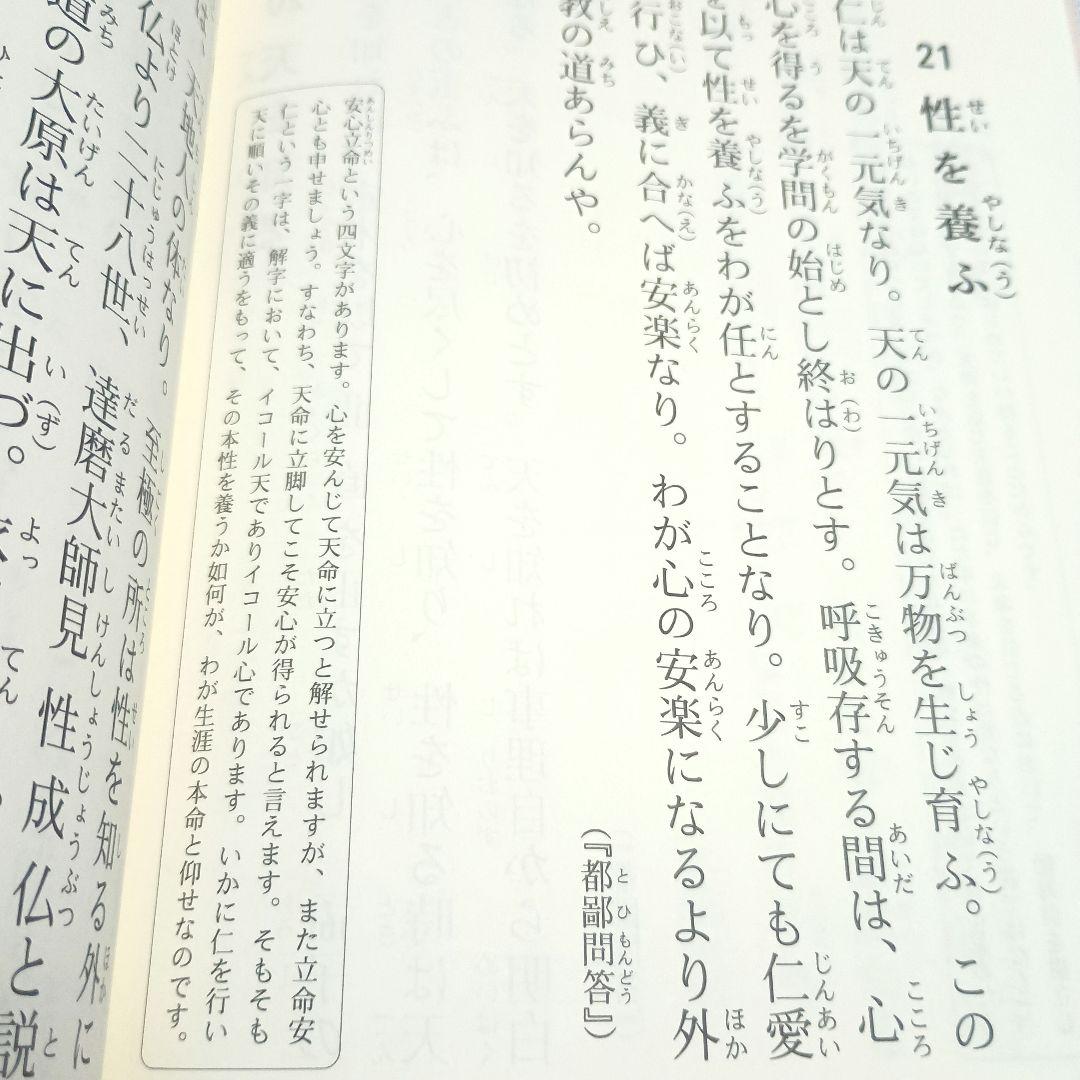 21 性を養ふ
仁は天の一元気なり。天の一元気は万物を生じ育ふ。この
心を得るを学問の始とし終はりとす。呼吸存する間は、心
を以て性を養ふをわが任とすることなり。少しにても仁愛
行ひ、義に合へば安楽なり。わが心の安楽になるより外
教の道あらんや。
(『都鄙問答』)
安心立命という四文字があります。心を安んじて天命に立つと解せられますが、また立命安
心とも申せましょう。すなわち、天命に立脚してこそ安心が得られると言えます。そもそも
仁という一字は、解字において、イコール天でありイコール心であります。いかに仁を行い
天に順いその義に適うをもって、その本性を養うか如何が、わが生涯の本命と仰せなのです。
天地人の体なり。至極の所は性を知る外に
仏より二十八世、達磨大師見性成仏と説
道の大原は天に出づ。